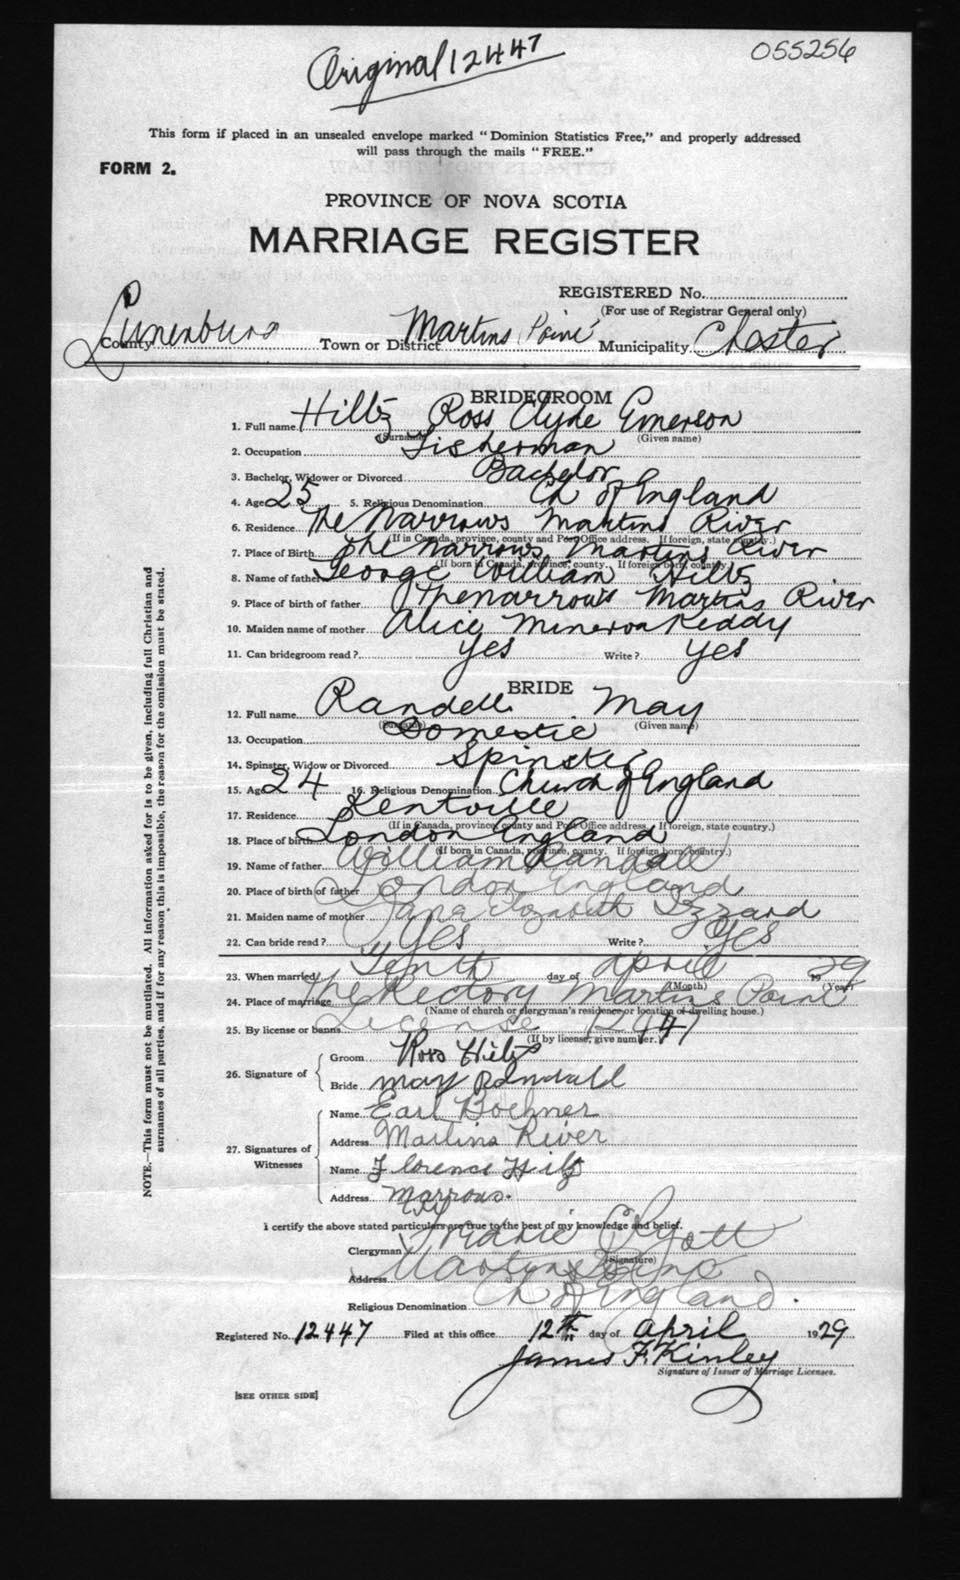 Original 12447
055256
This form if placed in an unsealed envelope marked "Dominion Statistics Free," and properly addressed
will pass through the mails "FREE."
FORM 2.
PROVINCE OF NOVA SCOTIA
MARRIAGE REGISTER
REGISTERED No.
(For use of Registrar General only)
County Lunenburg Town or District Martins Point Municipality Chester
BRIDEGROOM
1. Full name Hiltz Ross Clyde Emerson
(Surname) (Given name)
2. Occupation Fisherman
3. Bachelor, Widower or Divorced Bachelor
4. Age 25 5. Religious Denomination Ch of England
6. Residence The Narrows Martins River
(If in Canada, province, county and Post Office address. If foreign, state country.)
7. Place of Birth The Narrows Martins River
(If born in Canada, province, county. If foreign born, country.)
8. Name of father George William Hiltz
9. Place of birth of father The Narrows Martins River
10. Maiden name of mother Alice Minerva Keddy
11. Can bridegroom read? Yes Write? Yes
BRIDE
12. Full name Randell May
(Surname) (Given name)
13. Occupation Domestic
14. Spinster, Widow or Divorced Spinster
15. Age 24 16. Religious Denomination Church of England
17. Residence Kentville
(If in Canada, province, county and Post Office address. If foreign, state country.)
18. Place of birth London England
(If born in Canada, province, county. If foreign born, country.)
19. Name of father William Randall
20. Place of birth of father London England
21. Maiden name of mother Jane Elizabeth Izzard
22. Can bride read? Yes Write? Yes
23. When married Tenth day of April 1929
(Month) (Year)
24. Place of marriage The Rectory Martins Point
(Name of church or clergyman's residence or location of dwelling house.)
25. By license or banns License 12447
(If by license, give number.)
26. Signature of
Groom Ross Hiltz
Bride May Randall
27. Signatures of Witnesses
Name Earl Boehner
Address Martins River
Name Florence Hiltz
Address Narrows.
I certify the above stated particulars are true to the best of my knowledge and belief.
Clergyman
(Signature)
Address Martins Point
Religious Denomination Ch of England.
Registered No. 12447 Filed at this office 12th day of April 1929
James F. Kinley
Signature of Issuer of Marriage Licenses.
[SEE OTHER SIDE]
NOTE.—This form must not be mutilated. All information asked for is to be given, including full Christian and
surnames of all parties, and if for any reason this is impossible, the reason for the omission must be stated.